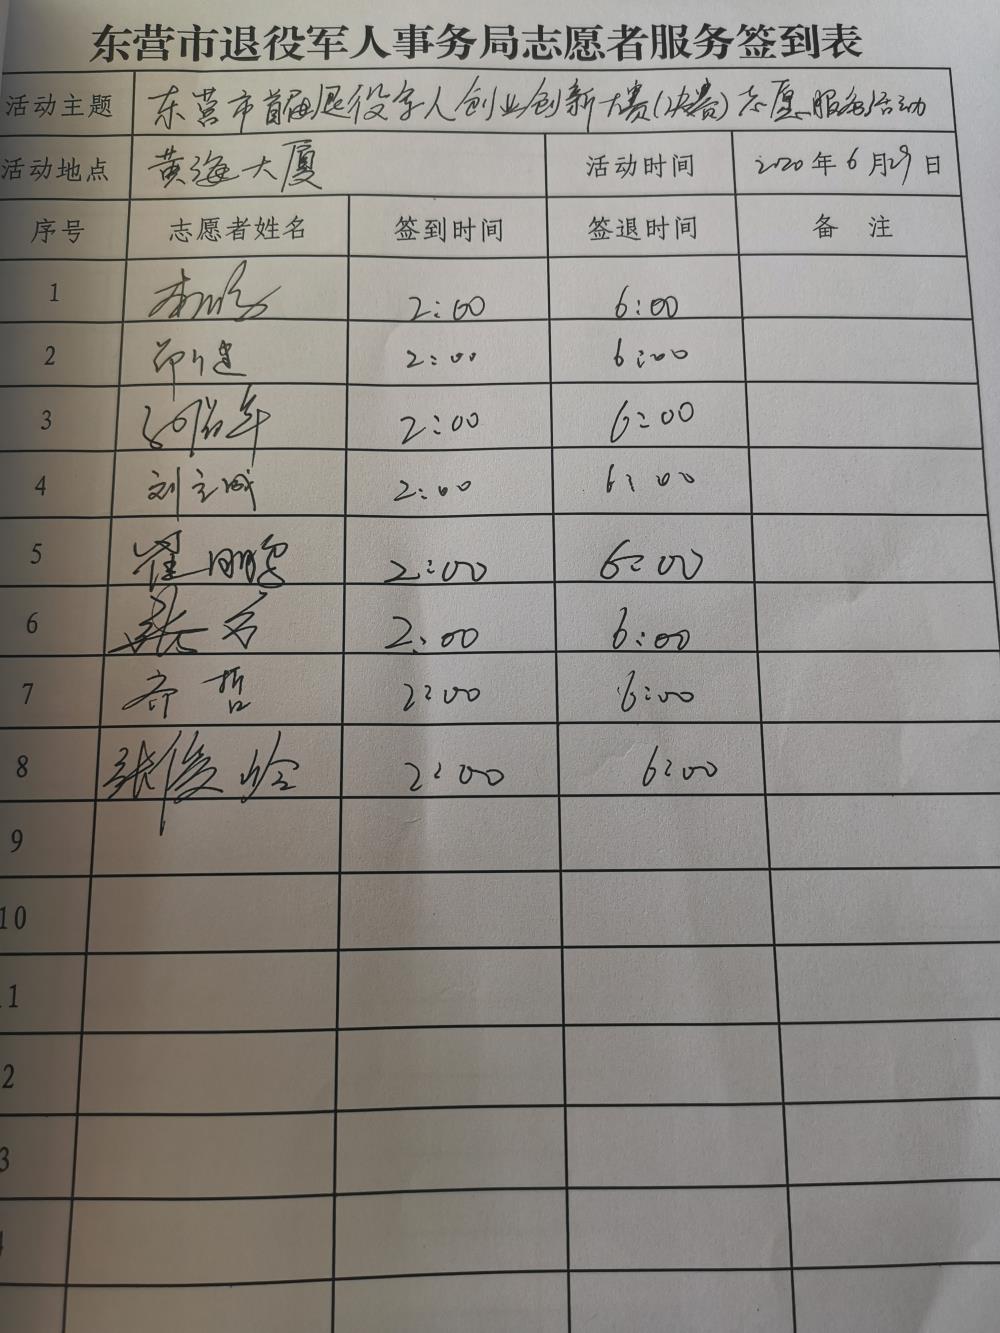 东营市退役军人事务局志愿者服务签到表
活动主题 东营市首届退役军人创业创新大赛(决赛)志愿服务活动
活动地点 黄海大厦 活动时间 2020年6月29日
序号 志愿者姓名 签到时间 签退时间 备 注
1 2:00 6:00
2 2:00 6:00
3 2:00 6:00
4 刘立成 2:00 6:00
5 崔鹏 2:00 6:00
6 张 2:00 6:00
7 齐哲 2:00 6:00
8 张俊岭 2:00 6:00
9
10
11
2
3